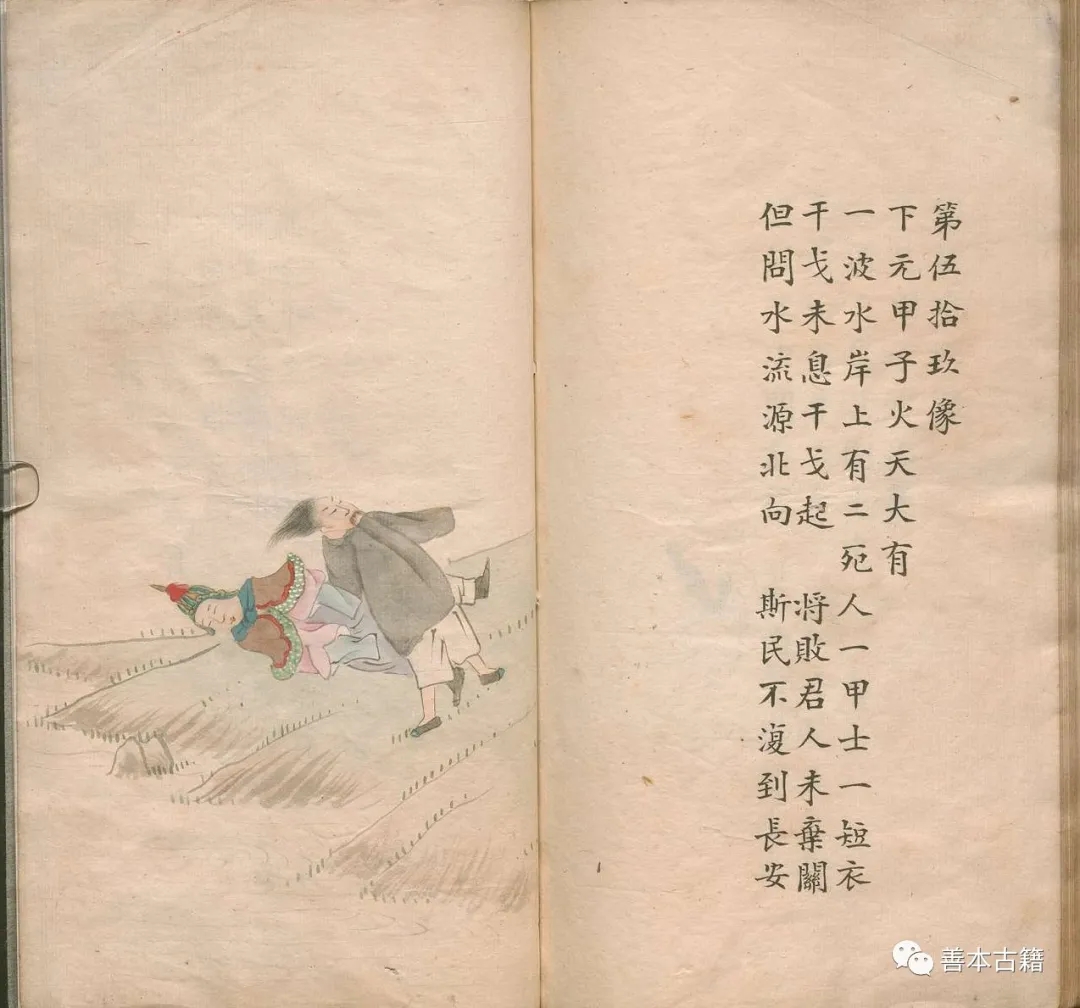 第伍拾玖像
下元甲子火天大有
一波水岸上有二死人一甲士一短衣
干戈未息干戈起 將敗君人未棄關
但問水流源北向 斯民不復到長安
善本古籍